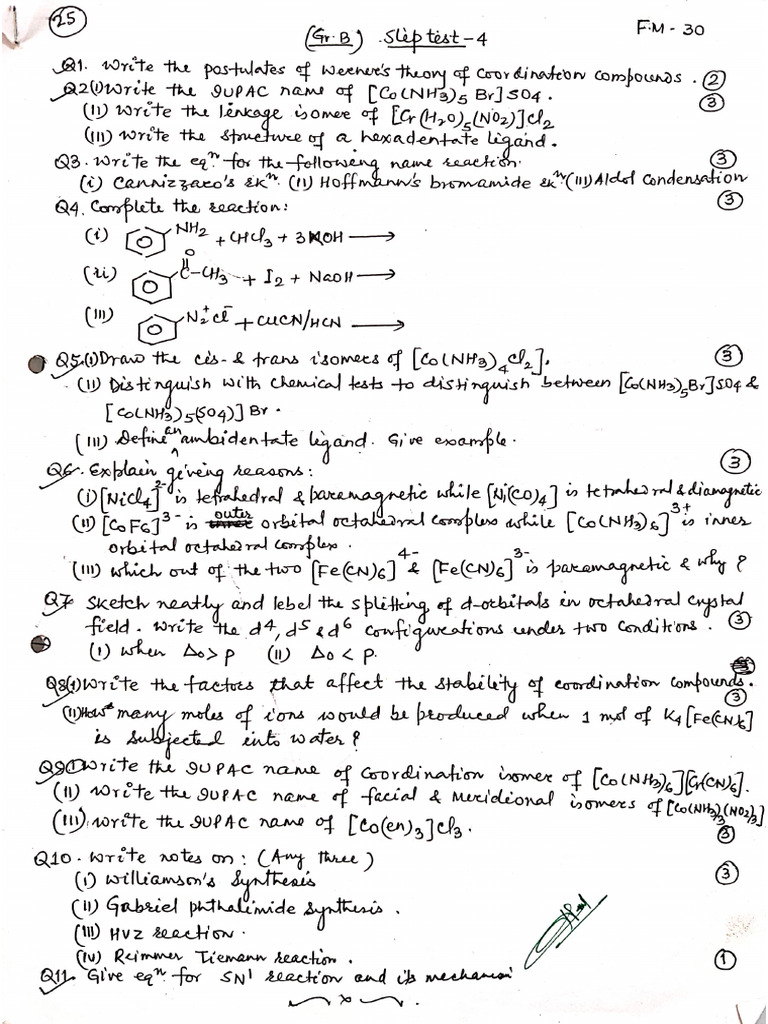 25
(Gr.B) Slip test-4 F.M - 30
Q1. Write the postulates of Werner's theory of coordination compounds. (2)
Q2(i) Write the IUPAC name of [Co(NH3)5 Br]SO4. (3)
(ii) Write the linkage isomer of [Cr(H2O)5(NO2)]Cl2
(iii) Write the structure of a hexadentate ligand.
Q3. Write the eqn for the following name reaction. (3)
(i) Cannizzaro's rxn (ii) Hoffmann's bromamide rxn (iii) Aldol Condensation
Q4. Complete the reaction: (3)
(i) NH2 + CHCl3 + 3KOH →
(ii) O C-CH3 + I2 + NaOH →
(iii) N2+Cl- + CuCN/HCN →
Q5.(i) Draw the cis- & trans isomers of [Co(NH3)4Cl2]. (3)
(ii) Distinguish with chemical tests to distinguish between [Co(NH3)5Br]SO4 &
[Co(NH3)5(SO4)] Br.
(iii) Define an ambidentate ligand. Give example.
Q6. Explain giving reasons: (3)
(i) [NiCl4]2- is tetrahedral & paramagnetic while [Ni(CO)4] is tetrahedral & diamagnetic
(ii) [CoF6]3- is outer orbital octahedral complex while [Co(NH3)6]3+ is inner
orbital octahedral complex.
(iii) which out of the two [Fe(CN)6]4- & [Fe(CN)6]3- is paramagnetic & why?
Q7 Sketch neatly and lebel the splitting of d-orbitals in octahedral crystal
field. Write the d4, d5 & d6 configurations under two conditions. (3)
(i) when Δo > P (ii) Δo < P.
Q8(i) Write the factors that affect the stability of coordination compounds. (3)
(ii) How many moles of ions would be produced when 1 mol of K4[Fe(CN)6]
is subjected into water?
Q9(i) Write the IUPAC name of coordination isomer of [Co(NH3)6][Cr(CN)6].
(ii) Write the IUPAC name of facial & Meridional isomers of [Co(NH3)3(NO2)3]
(iii) write the IUPAC name of [Co(en)3]Cl3. (3)
Q10. Write notes on: (Any three) (3)
(i) Williamson's Synthesis
(ii) Gabriel phthalimide synthesis.
(iii) HVZ reaction.
(iv) Reimmer Tiemann reaction. (1)
Q11. Give eqn for SN1 reaction and its mechanism
x